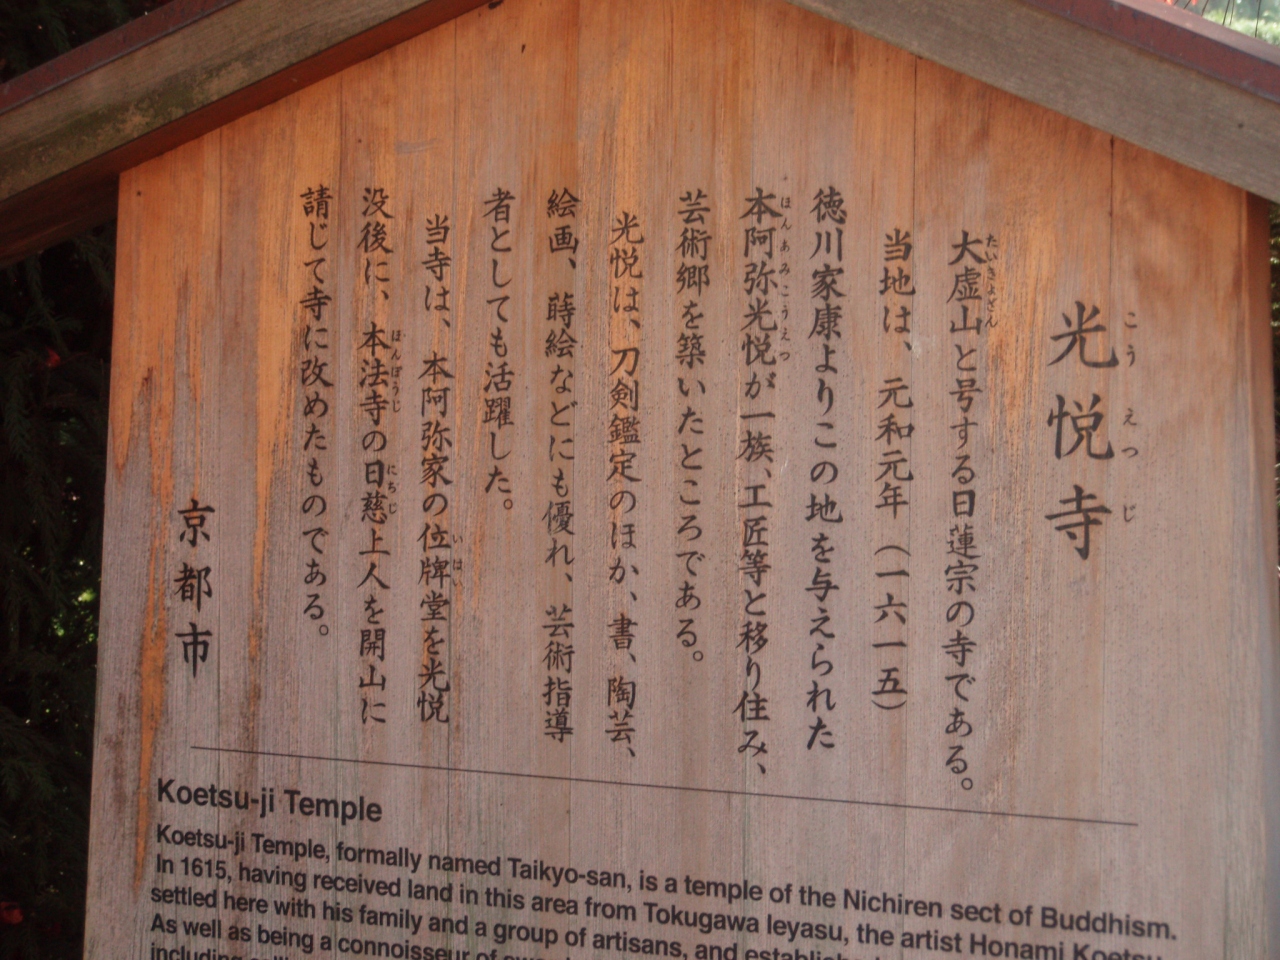 光悦寺
こうえつじ
大虚山と号する日蓮宗の寺である。
たいきょざん
当地は、元和元年（一六一五）
徳川家康よりこの地を与えられた
本阿弥光悦が一族、工匠等と移り住み、
ほんあみこうえつ
芸術郷を築いたところである。
光悦は、刀剣鑑定のほか、書、陶芸、
絵画、蒔絵などにも優れ、芸術指導
者としても活躍した。
当寺は、本阿弥家の位牌堂を光悦
いはい
没後に、本法寺の日慈上人を開山に
ほんぽうじ
にちじ
請じて寺に改めたものである。
京都市
Koetsu-ji Temple
Koetsu-ji Temple, formally named Taikyo-san, is a temple of the Nichiren sect of Buddhism.
In 1615, having received land in this area from Tokugawa Ieyasu, the artist Honami Koetsu
settled here with his family and a group of artisans, and
As well as being a connoisseur of
including